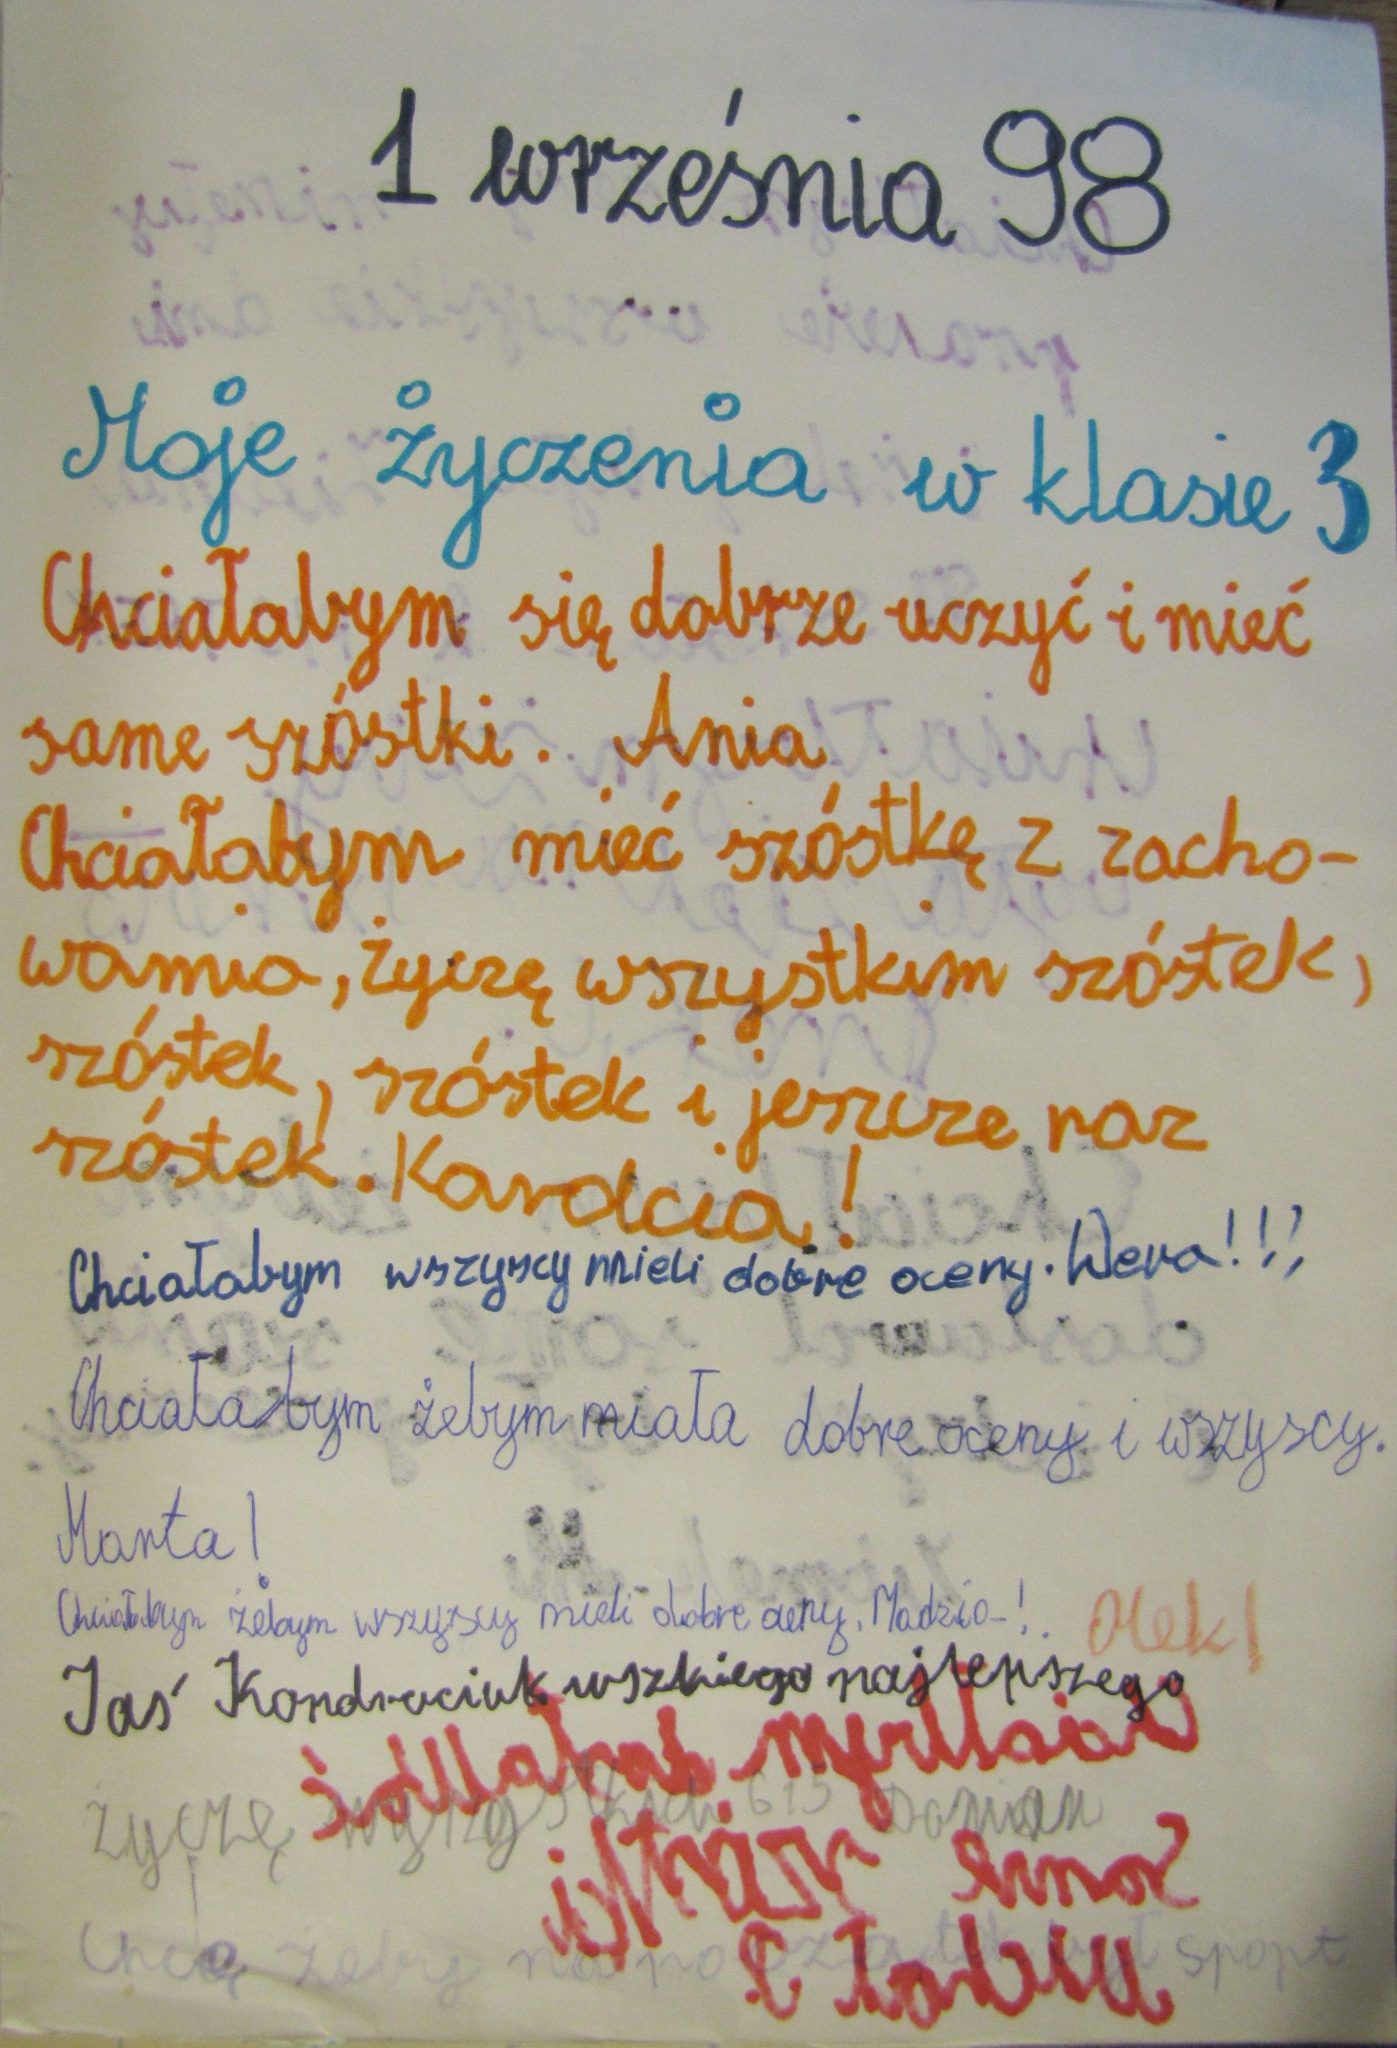 1 września 98
Moje życzenia w klasie 3
Chciałabym się dobrze uczyć i mieć
same szóstki. Ania
Chciałabym mieć szóstkę z zacho-
wania, życzę wszystkim szóstek,
szóstek, szóstek i jeszcze raz
szóstek. Karolcia!
Chciałabym wszyscy mieli dobre oceny. Wera!!!
Chciałabym żebym miała dobre oceny i wszyscy.
Marta!
Chciałabym żebym wszyscy mieli dobre oceny. Madzia-!.
Olek!
Jaś Kondraciuk wszkiego najlepszego
Życzę 6 i 5 Damian
Chcę żeby na początek był sport